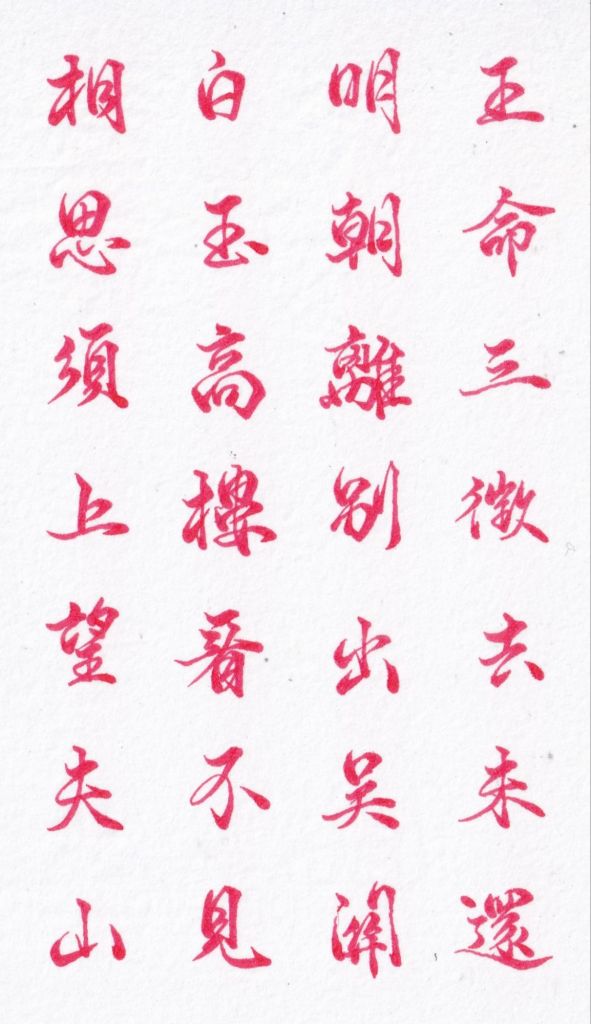 王命三徵去未還
明朝離別出吳關
白玉高樓看不見
相思須上望夫山